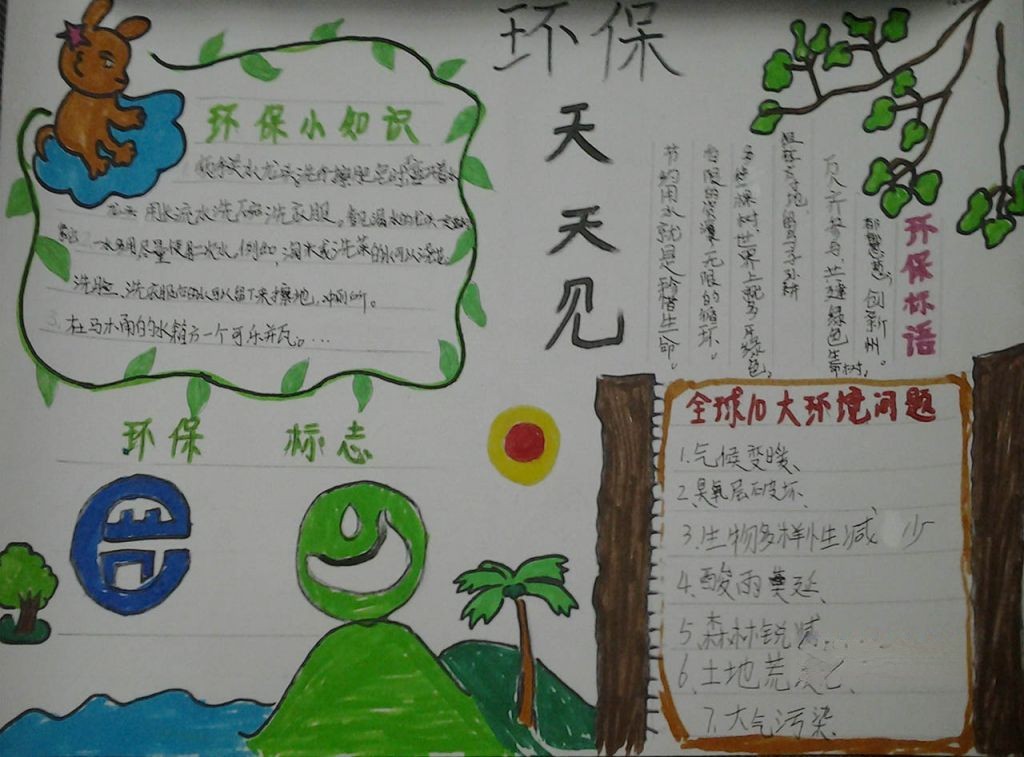 环保
天
天
见
环保小知识
用水流水洗 洗衣服。
一水多用尽量使用二次水。例如,淘米或洗菜的水可以浇花。
洗脸、洗衣服后的水可以留下来擦地,冲厕所。
3.在马木甬的水箱方一个可乐并瓦。...
环保杯语
创新州。
万人齐参与,共建绿色
留与子孙耕
多 一棵树,世界上就多一片绿色,
有限的资源,无限的循环。
节约用水就是珍惜生命。
环保 标志
全球10大环境问题
1.气候变暖、
2.臭氧层破坏、
3.生物多样性减 少
4.酸雨蔓延、
5.森林锐减、
6.土地荒
7.大气污染、